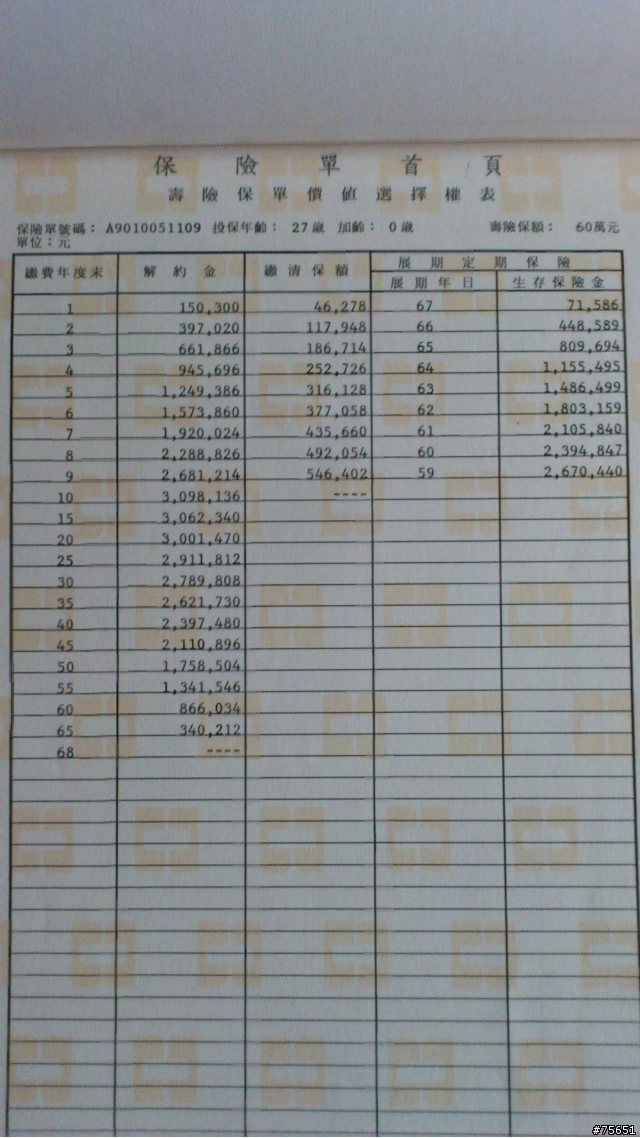 保險單首頁
壽險保單價值選擇權表
保險單號碼： A9010051109 投保年齡： 27歲 加齡： 0歲 壽險保額： 60萬元
單位：元
繳費年度末 解約金 繳清保額 展期定期保險
展期年日 生存保險金
1 150,300 46,278 67 71,586
2 397,020 117,948 66 448,589
3 661,866 186,714 65 809,694
4 945,696 252,726 64 1,155,495
5 1,249,386 316,128 63 1,486,499
6 1,573,860 377,058 62 1,803,159
7 1,920,024 435,660 61 2,105,840
8 2,288,826 492,054 60 2,394,847
9 2,681,214 546,402 59 2,670,440
10 3,098,136 ----
15 3,062,340
20 3,001,470
25 2,911,812
30 2,789,808
35 2,621,730
40 2,397,480
45 2,110,896
50 1,758,504
55 1,341,546
60 866,034
65 340,212
68 ----
#75651